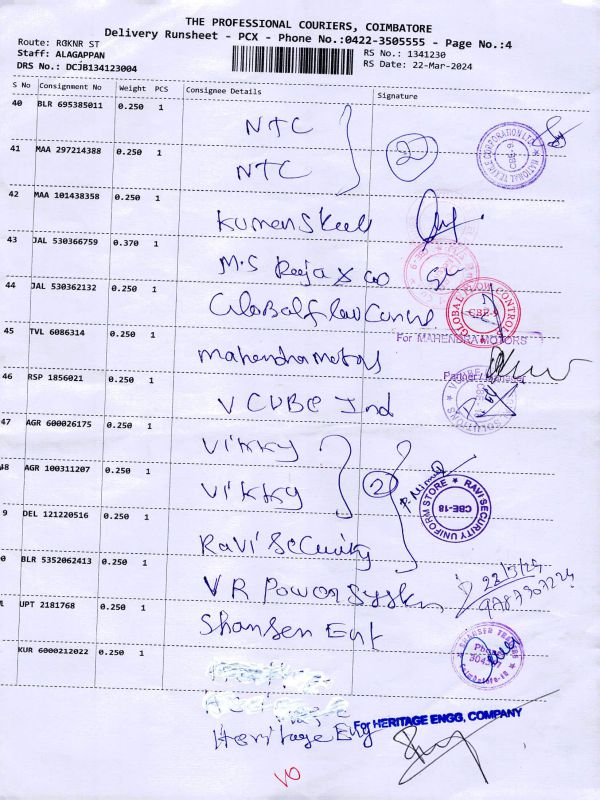 THE PROFESSIONAL COURIERS, COIMBATORE
Delivery Runsheet - PCX - Phone No.:0422-3505555 - Page No.:4
Route: RGKNR ST
Staff: ALAGAPPAN
DRS No.: DCJB134123004
RS No.: 1341230
RS Date: 22-Mar-2024
S No Consignment No Weight PCS Consignee Details Signature
40 BLR 695385011 0.250 1
NTC
41 MAA 297214388 0.250 1
NTC
2
NATIONAL CORPORATION LTD
42 MAA 101438358 0.250 1
43 JAL 530366759 0.370 1
M.S Reeja & co
44 JAL 530362132 0.250 1
GLOBAL FLOW CONTROL
CBE-9
45 TVL 6086314 0.250 1
Mahendra motors
For MAHENDRA MOTORS
46 RSP 1856021 0.250 1
V CUBE Ind
47 AGR 600026175 0.250 1
Vikky
48 AGR 100311207 0.250 1
Vikky
2
9 DEL 121220516 0.250 1
Ravi Security
RAVI SECURITY UNIFORM STORE
CBE-18
0 BLR 5352062413 0.250 1
V R Power System
22/3/24
UPT 2181768 0.250 1
Shansen Ent
KUR 6000212022 0.250 1
Heritage Eng
For HERITAGE ENGG, COMPANY